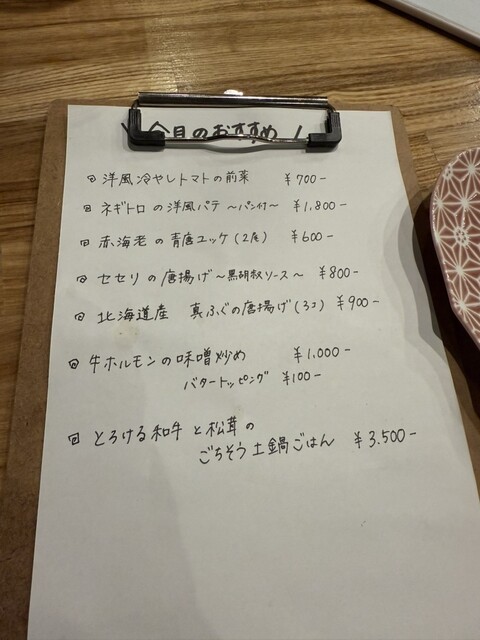 今月のおすすめ！
洋風冷やしトマトの前菜 ¥700-
ネギトロの洋風パテ〜パン付〜 ¥1.800-
赤海老の青唐ユッケ(2尾) ¥600-
セセリの唐揚げ〜黒胡椒ソース〜 ¥800-
北海道産 真ふぐの唐揚げ(3コ) ¥900-
牛ホルモンの味噌炒め ¥1.000-
バタートッピング ¥100-
とろける和牛と松茸の
ごちそう土鍋ごはん ¥3.500-